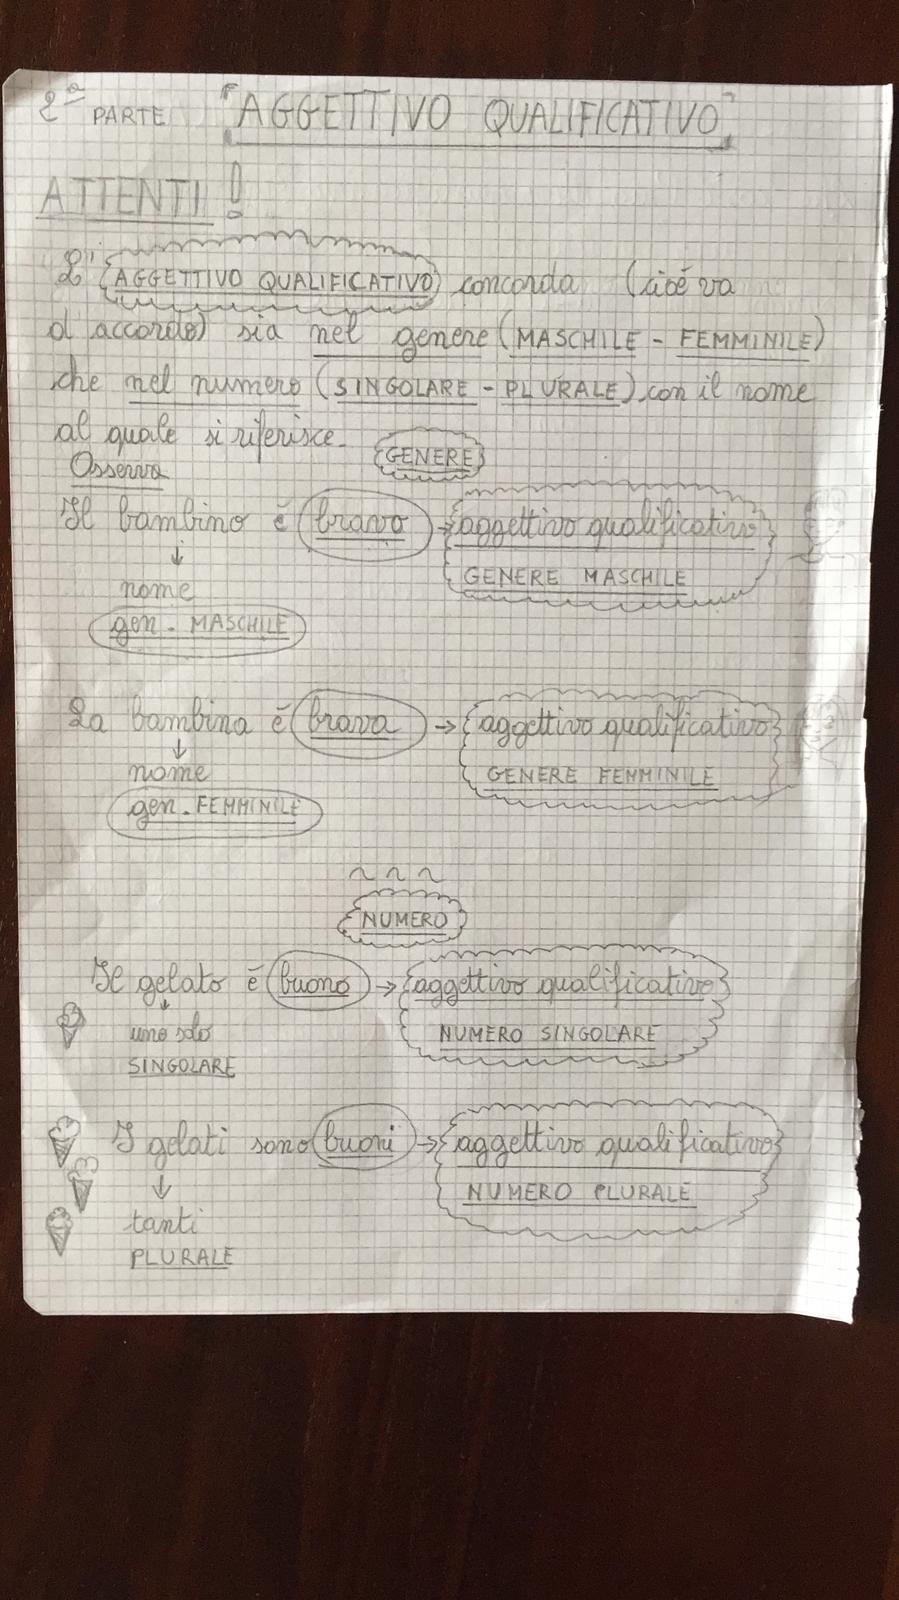 2ª PARTE "AGGETTIVO QUALIFICATIVO"
ATTENTI!
L'AGGETTIVO QUALIFICATIVO concorda (cioé va
d'accordo) sia nel genere (MASCHILE - FEMMINILE)
che nel numero (SINGOLARE - PLURALE), con il nome
al quale si riferisce.
GENERE
Osserva
Il bambino é bravo → aggettivo qualificativo
↓
GENERE MASCHILE
nome
gen. MASCHILE
La bambina é brava → aggettivo qualificativo
↓
nome
GENERE FEMMINILE
gen. FEMMINILE
~ ~ ~
NUMERO
Il gelato é buono → aggettivo qualificativo
↓
uno solo
NUMERO SINGOLARE
SINGOLARE
I gelati sono buoni → aggettivo qualificativo
↓
NUMERO PLURALE
tanti
PLURALE